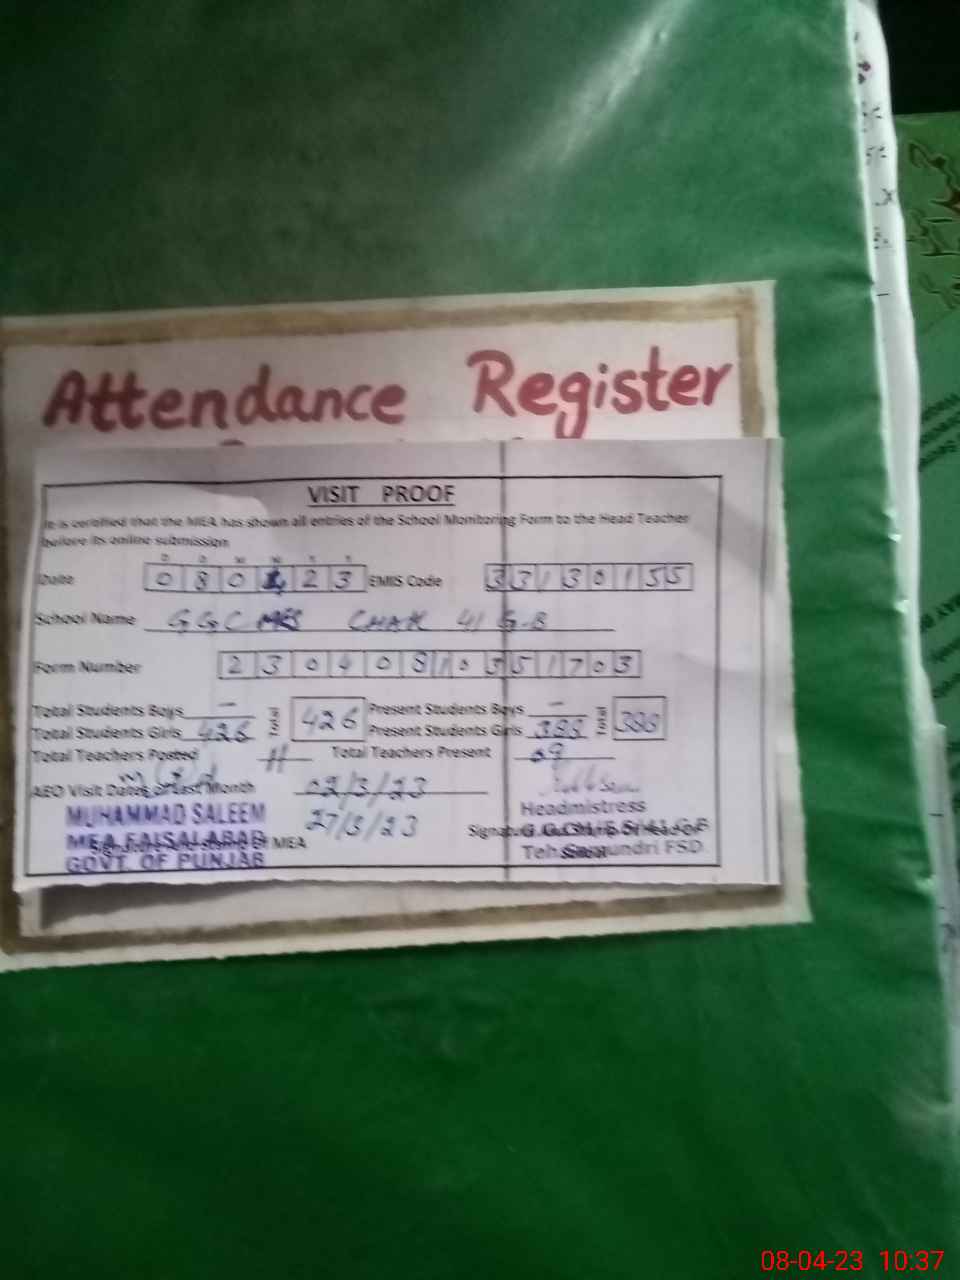 Attendance Register
VISIT PROOF
It is certified that the MEA has shown all entries of the School Monitoring Form to the Head Teacher
before its online submission
D D M M Y Y
Date 080423 EMIS Code 33130155
School Name G.G.C MES CHAK 41 G-B
Form Number 23040810351703
Total Students Boys - 426 Present Students Boys - 388
Total Students Girls 426 Present Students Girls 388
Total Teachers Posted 11 Total Teachers Present 09
AEO Visit Dates of Last Month 02/3/23
27/3/23
MUHAMMAD SALEEM
MEA FAISALABAD
GOVT. OF PUNJAB
of MEA
Headmistress
Teh Samundri FSD.
08-04-23 10:37